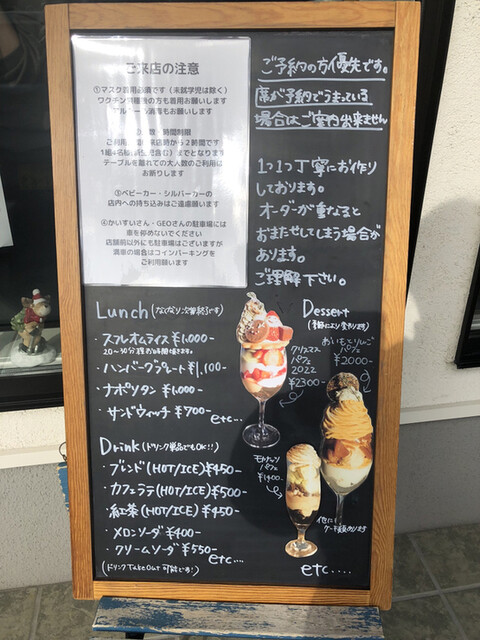 ご来店の注意
①マスク着用必須です（未就学児は除く）
ワクチン接種後の方も着用お願いします
アルコール消毒もお願いします
数・時間制限
ご利用 来店時から２時間です
1組4名様 含む）までとなります
テーブルを離れての大人数のご利用は
お断りします
③ベビーカー・シルバーカーの
店内への持ち込みはご遠慮願います
④かいすいさん・GEOさんの駐車場には
車を停めないでください
店舗前以外にも駐車場はございますが
満車の場合はコインパーキングを
ご利用願います
ご予約の方優先です。
席が予約でうまっている
場合はご案内出来ません
1つ1つ丁寧にお作り
しております。
オーダーが重なると
おまたせしてしまう場合が
あります。
ご理解下さい。
Lunch(なくなり次第終了です)
・スフレオムライス ¥1,000-
20〜30分程お時間頂きます。
・ハンバーグプレート ¥1,100-
・ナポリタン ¥1,000-
・サンドウィッチ ¥700-
etc...
Drink(ドリンク単品でもOK!!)
・ブレンド(HOT/ICE)¥450-
・カフェラテ(HOT/ICE)¥500-
・紅茶(HOT/ICE)¥450-
・メロンソーダ ¥400-
・クリームソーダ ¥550-
etc...
(ドリンクTake Out 可能です!)
Dessert
(季節により変わります)
クリスマス
パフェ
2022
¥2300-
おいもとりんご
パフェ
¥2000-
モンブラン
パフェ
¥1400-
他にも
ケーキ類あります
etc....